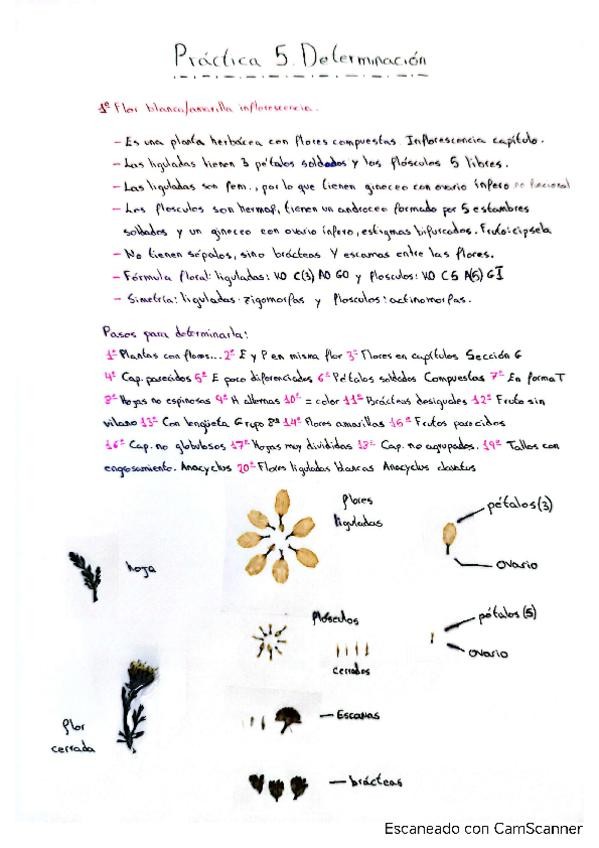 Práctica 5. Determinación
1º Flor blanca/amarilla inflorescencia.
- Es una planta herbácea con flores compuestas. Inflorescencia capítulo.
- Las liguladas tienen 3 pétalos soldados y los flósculos 5 libres.
- Las liguladas son fem., por lo que tienen gineceo con ovario ínfero no funcional
- Los flosculos son hermaf, tienen un androceo formado por 5 estambres
soldados y un gineceo con ovario ínfero, estigmas bifurcados. Fruto: cipsela
- No tienen sépalos, sino brácteas y escamas entre las flores.
- Fórmula floral: liguladas: KO C(3) AO GO y flosculos: KO C5 A(5) GI
- Simetría: liguladas: zigomorfas y flosculos: actinomorfas.
Pasos para determinarla:
1º Plantas con flores... 2º E y P en misma flor 3º Flores en capítulos Sección 6
4º Cap. parecidos 5º E poco diferenciados 6º Pétalos soldados Compuestas 7º En forma T
8º Hojas no espinosas 9º H alternas 10º = color 11º Brácteas desiguales 12º Fruto sin
vilano 13º Con lengüeta Grupo 8º 14º Flores amarillas 15º Frutos parecidos
16º Cap. no globulosos 17º Hojas muy divididas 18º Cap. no agrupados. 19º Tallos con
engrosamiento. Anacyclus 20º Flores liguladas blancas Anacyclus clavatus
flores
liguladas
pétalos (3)
ovario
hoja
flósculos
cerrados
pétalos (5)
ovario
flor
cerrada
- Escamas
- brácteas
Escaneado con CamScanner